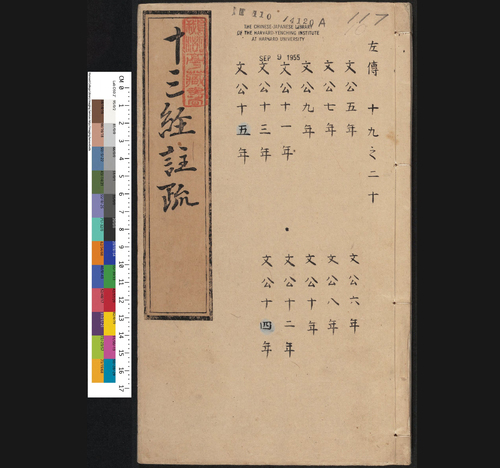 117
14120A
THE CHINESE-JAPANESE LIBRARY
OF THE HARVARD-YENCHING INSTITUTE
AT HARVARD UNIVERSITY
SEP 9 1955
左傳 十九之二十
文公五年 文公六年
文公七年 文公八年
文公九年 文公十年
文公十一年 文公十二年
文公十三年 文公十四年
文公十五年
十三經註疏
CM 0 1 2 3 4 5 6 7 8 9 10 11 12 13 14 15 16 17